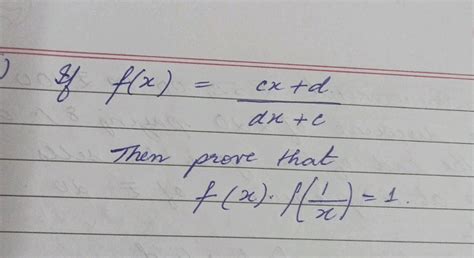 ) If f(x) = cx+d / dx+c
Then prove that
f(x). f(1/x) = 1.